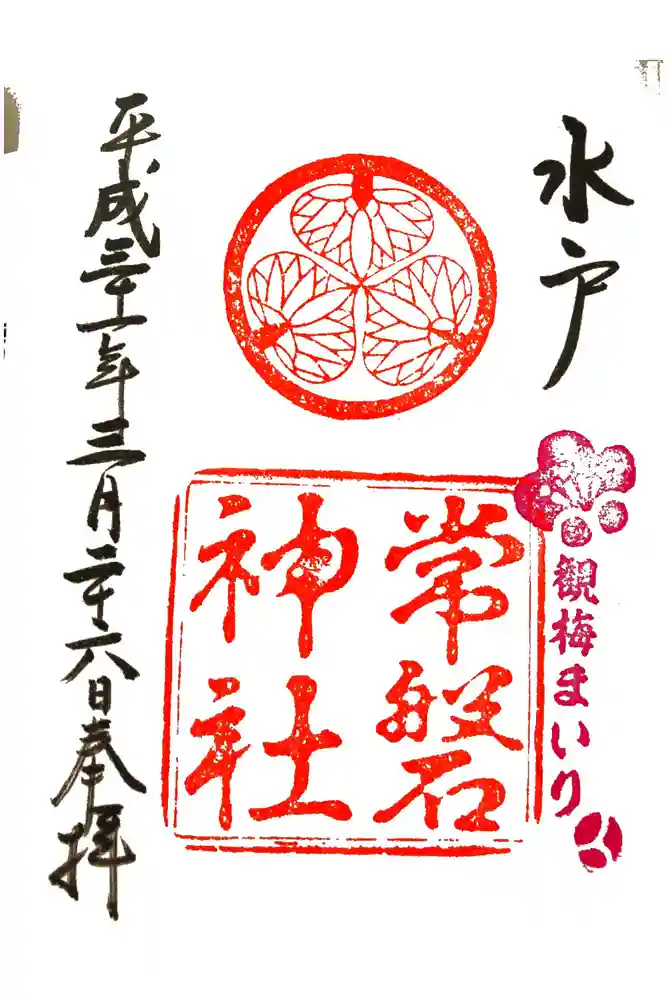 水戸
観梅まいり
常磐
神社
平成三十一年三月二十六日奉拝